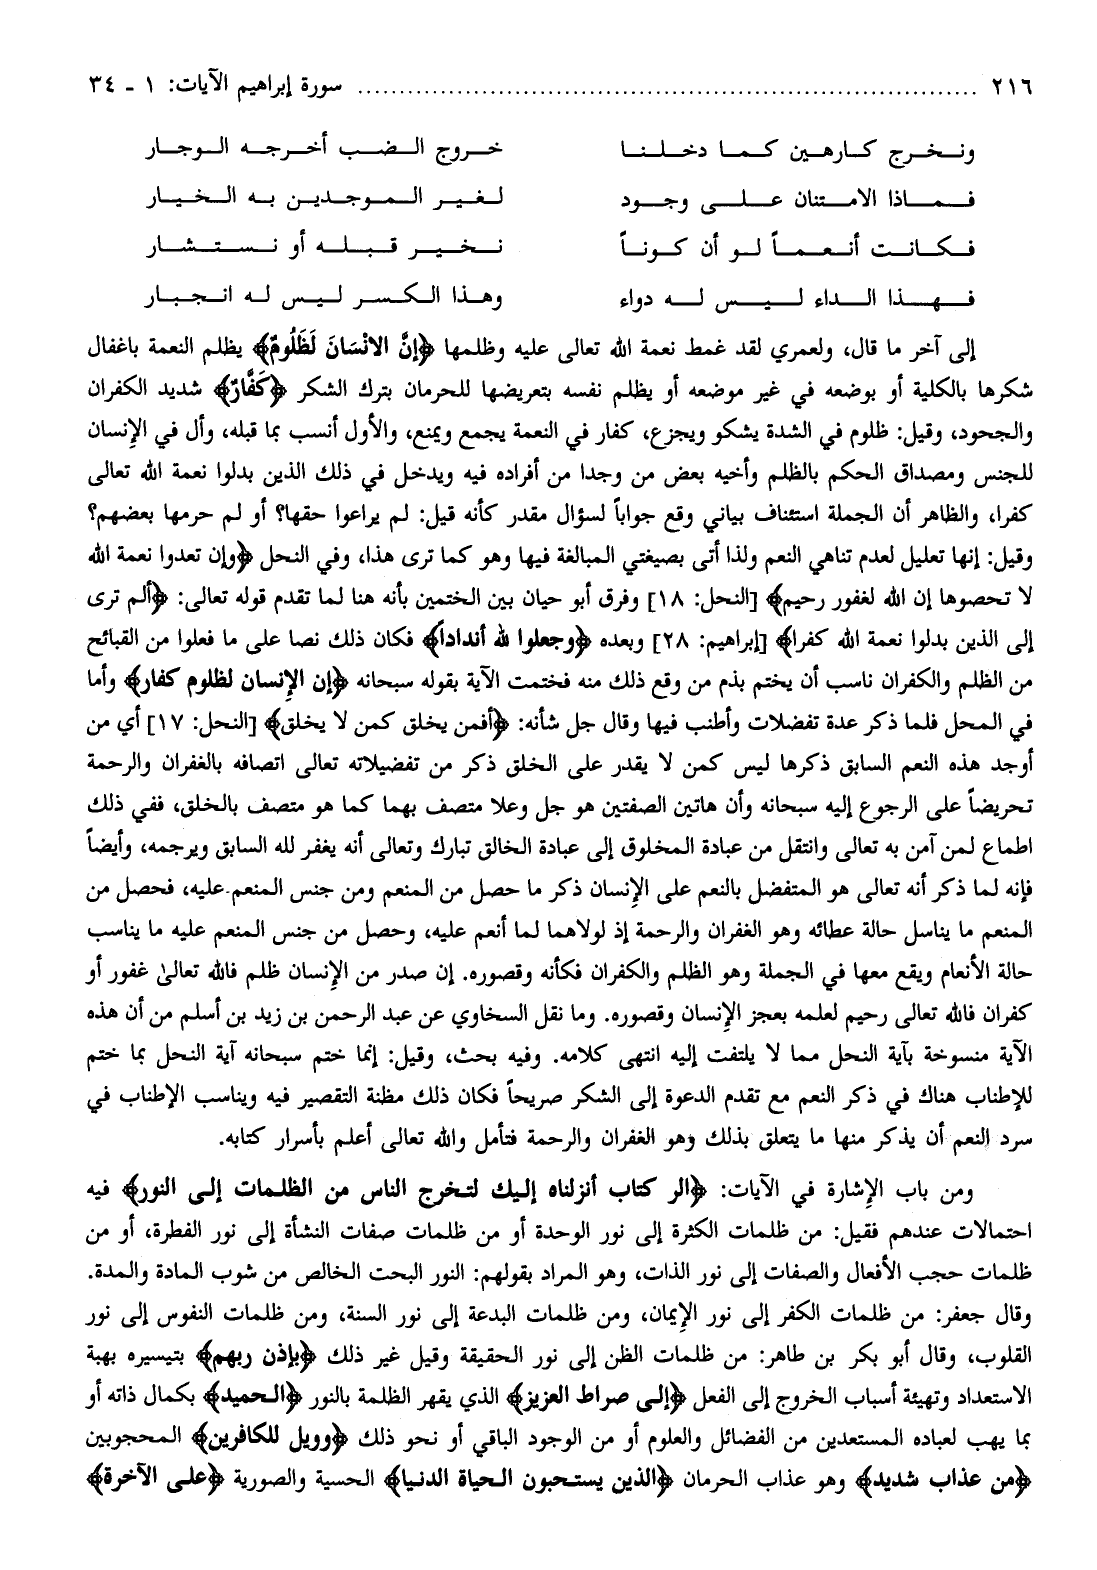 ٢١٦ ........................................................................ سورة إبراهيم الآيات: ١ - ٣٤
ونـخـرج كـارهـين كـمـا دخـلـنـا خـروج الـضـب أخـرجـه الـوجـار
فـمـاذا الامـتنان عـلـى وجـود لـغـير الـمـوجـديـن بـه الـخـيـار
فـكـانـت أنـعـمـاً لـو أن كـونـاً نـخـيـر قـبـلـه أو نـسـتـشـار
فـهـذا الـداء لـيـس لـه دواء وهـذا الـكـسـر لـيـس لـه انـجـبـار
إلى آخر ما قال، ولعمري لقد غمط نعمة الله تعالى عليه وظلمها ﴿إِنَّ الانْسَانَ لَظَلُومٌ﴾ يظلم النعمة باغفال
شكرها بالكلية أو بوضعه في غير موضعه أو يظلم نفسه بتعريضها للحرمان بترك الشكر ﴿كَفَّارٌ﴾ شديد الكفران
والجحود، وقيل: ظلوم في الشدة يشكو ويجزع، كفار في النعمة يجمع ويمنع، والأول أنسب بما قبله، وأل في الإنسان
للجنس ومصداق الحكم بالظلم وأخيه بعض من وجدا من أفراده فيه ويدخل في ذلك الذين بدلوا نعمة الله تعالى
كفرا، والظاهر أن الجملة استئناف بياني وقع جواباً لسؤال مقدر كأنه قيل: لم يراعوا حقها؟ أو لم حرمها بعضهم؟
وقيل: إنها تعليل لعدم تناهي النعم ولذا أتى بصيغتي المبالغة فيها وهو كما ترى هذا، وفي النحل ﴿وإن تعدوا نعمة الله
لا تحصوها إن الله لغفور رحيم﴾ [النحل: ١٨] وفرق أبو حيان بين الختمين بأنه هنا لما تقدم قوله تعالى: ﴿ألم ترى
إلى الذين بدلوا نعمة الله كفرا﴾ [إبراهيم: ٢٨] وبعده ﴿وجعلوا لله أنداداً﴾ فكان ذلك نصا على ما فعلوا من القبائح
من الظلم والكفران ناسب أن يختم بذم من وقع ذلك منه فختمت الآية بقوله سبحانه ﴿إن الإنسان لظلوم كفار﴾ وأما
في المحل فلما ذكر عدة تفضلات وأطنب فيها وقال جل شأنه: ﴿أفمن يخلق كمن لا يخلق﴾ [النحل: ١٧] أي من
أوجد هذه النعم السابق ذكرها ليس كمن لا يقدر على الخلق ذكر من تفضيلاته تعالى اتصافه بالغفران والرحمة
تحريضاً على الرجوع إليه سبحانه وأن هاتين الصفتين هو جل وعلا متصف بهما كما هو متصف بالخلق، ففي ذلك
اطماع لمن آمن به تعالى وانتقل من عبادة المخلوق إلى عبادة الخالق تبارك وتعالى أنه يغفر لله السابق ويرحمه، وأيضاً
فإنه لما ذكر أنه تعالى هو المتفضل بالنعم على الإنسان ذكر ما حصل من المنعم ومن جنس المنعم عليه، فحصل من
المنعم ما يناسل حالة عطائه وهو الغفران والرحمة إذ لولاهما لما أنعم عليه، وحصل من جنس المنعم عليه ما يناسب
حالة الأنعام ويقع معها في الجملة وهو الظلم والكفران فكأنه وقصوره. إن صدر من الإنسان ظلم فالله تعالىٰ غفور أو
كفران فالله تعالى رحيم لعلمه بعجز الإنسان وقصوره. وما نقل السخاوي عن عبد الرحمن بن زيد بن أسلم من أن هذه
الآية منسوخة بآية النحل مما لا يلتفت إليه انتهى كلامه. وفيه بحث، وقيل: إنما ختم سبحانه آية النحل بما ختم
للإطناب هناك في ذكر النعم مع تقدم الدعوة إلى الشكر صريحاً فكان ذلك مظنة التقصير فيه ويناسب الإطناب في
سرد النعم أن يذكر منها ما يتعلق بذلك وهو الغفران والرحمة فتأمل والله تعالى أعلم بأسرار كتابه.
ومن باب الإشارة في الآيات: ﴿الر كتاب أنزلناه إليك لتخرج الناس من الظلمات إلى النور﴾ فيه
احتمالات عندهم فقيل: من ظلمات الكثرة إلى نور الوحدة أو من ظلمات صفات النشأة إلى نور الفطرة، أو من
ظلمات حجب الأفعال والصفات إلى نور الذات، وهو المراد بقولهم: النور البحت الخالص من شوب المادة والمدة.
وقال جعفر: من ظلمات الكفر إلى نور الإيمان، ومن ظلمات البدعة إلى نور السنة، ومن ظلمات النفوس إلى نور
القلوب، وقال أبو بكر بن طاهر: من ظلمات الظن إلى نور الحقيقة وقيل غير ذلك ﴿بإذن ربهم﴾ بتيسيره بهبة
الاستعداد وتهيئة أسباب الخروج إلى الفعل ﴿إلى صراط العزيز﴾ الذي يقهر الظلمة بالنور ﴿الحميد﴾ بكمال ذاته أو
بما يهب لعباده المستعدين من الفضائل والعلوم أو من الوجود الباقي أو نحو ذلك ﴿وويل للكافرين﴾ المحجوبين
﴿من عذاب شديد﴾ وهو عذاب الحرمان ﴿الذين يستحبون الحياة الدنيا﴾ الحسية والصورية ﴿على الآخرة﴾